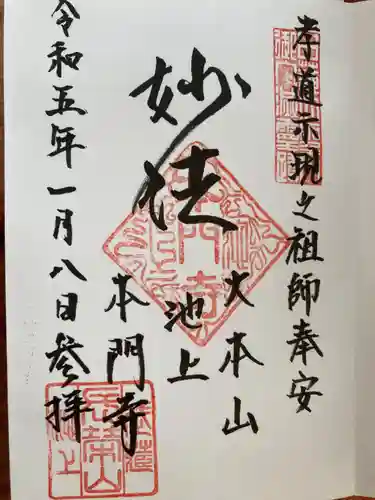 孝道示現之祖師奉安
妙法
大本山
池上
本門寺
令和五年一月八日参拝